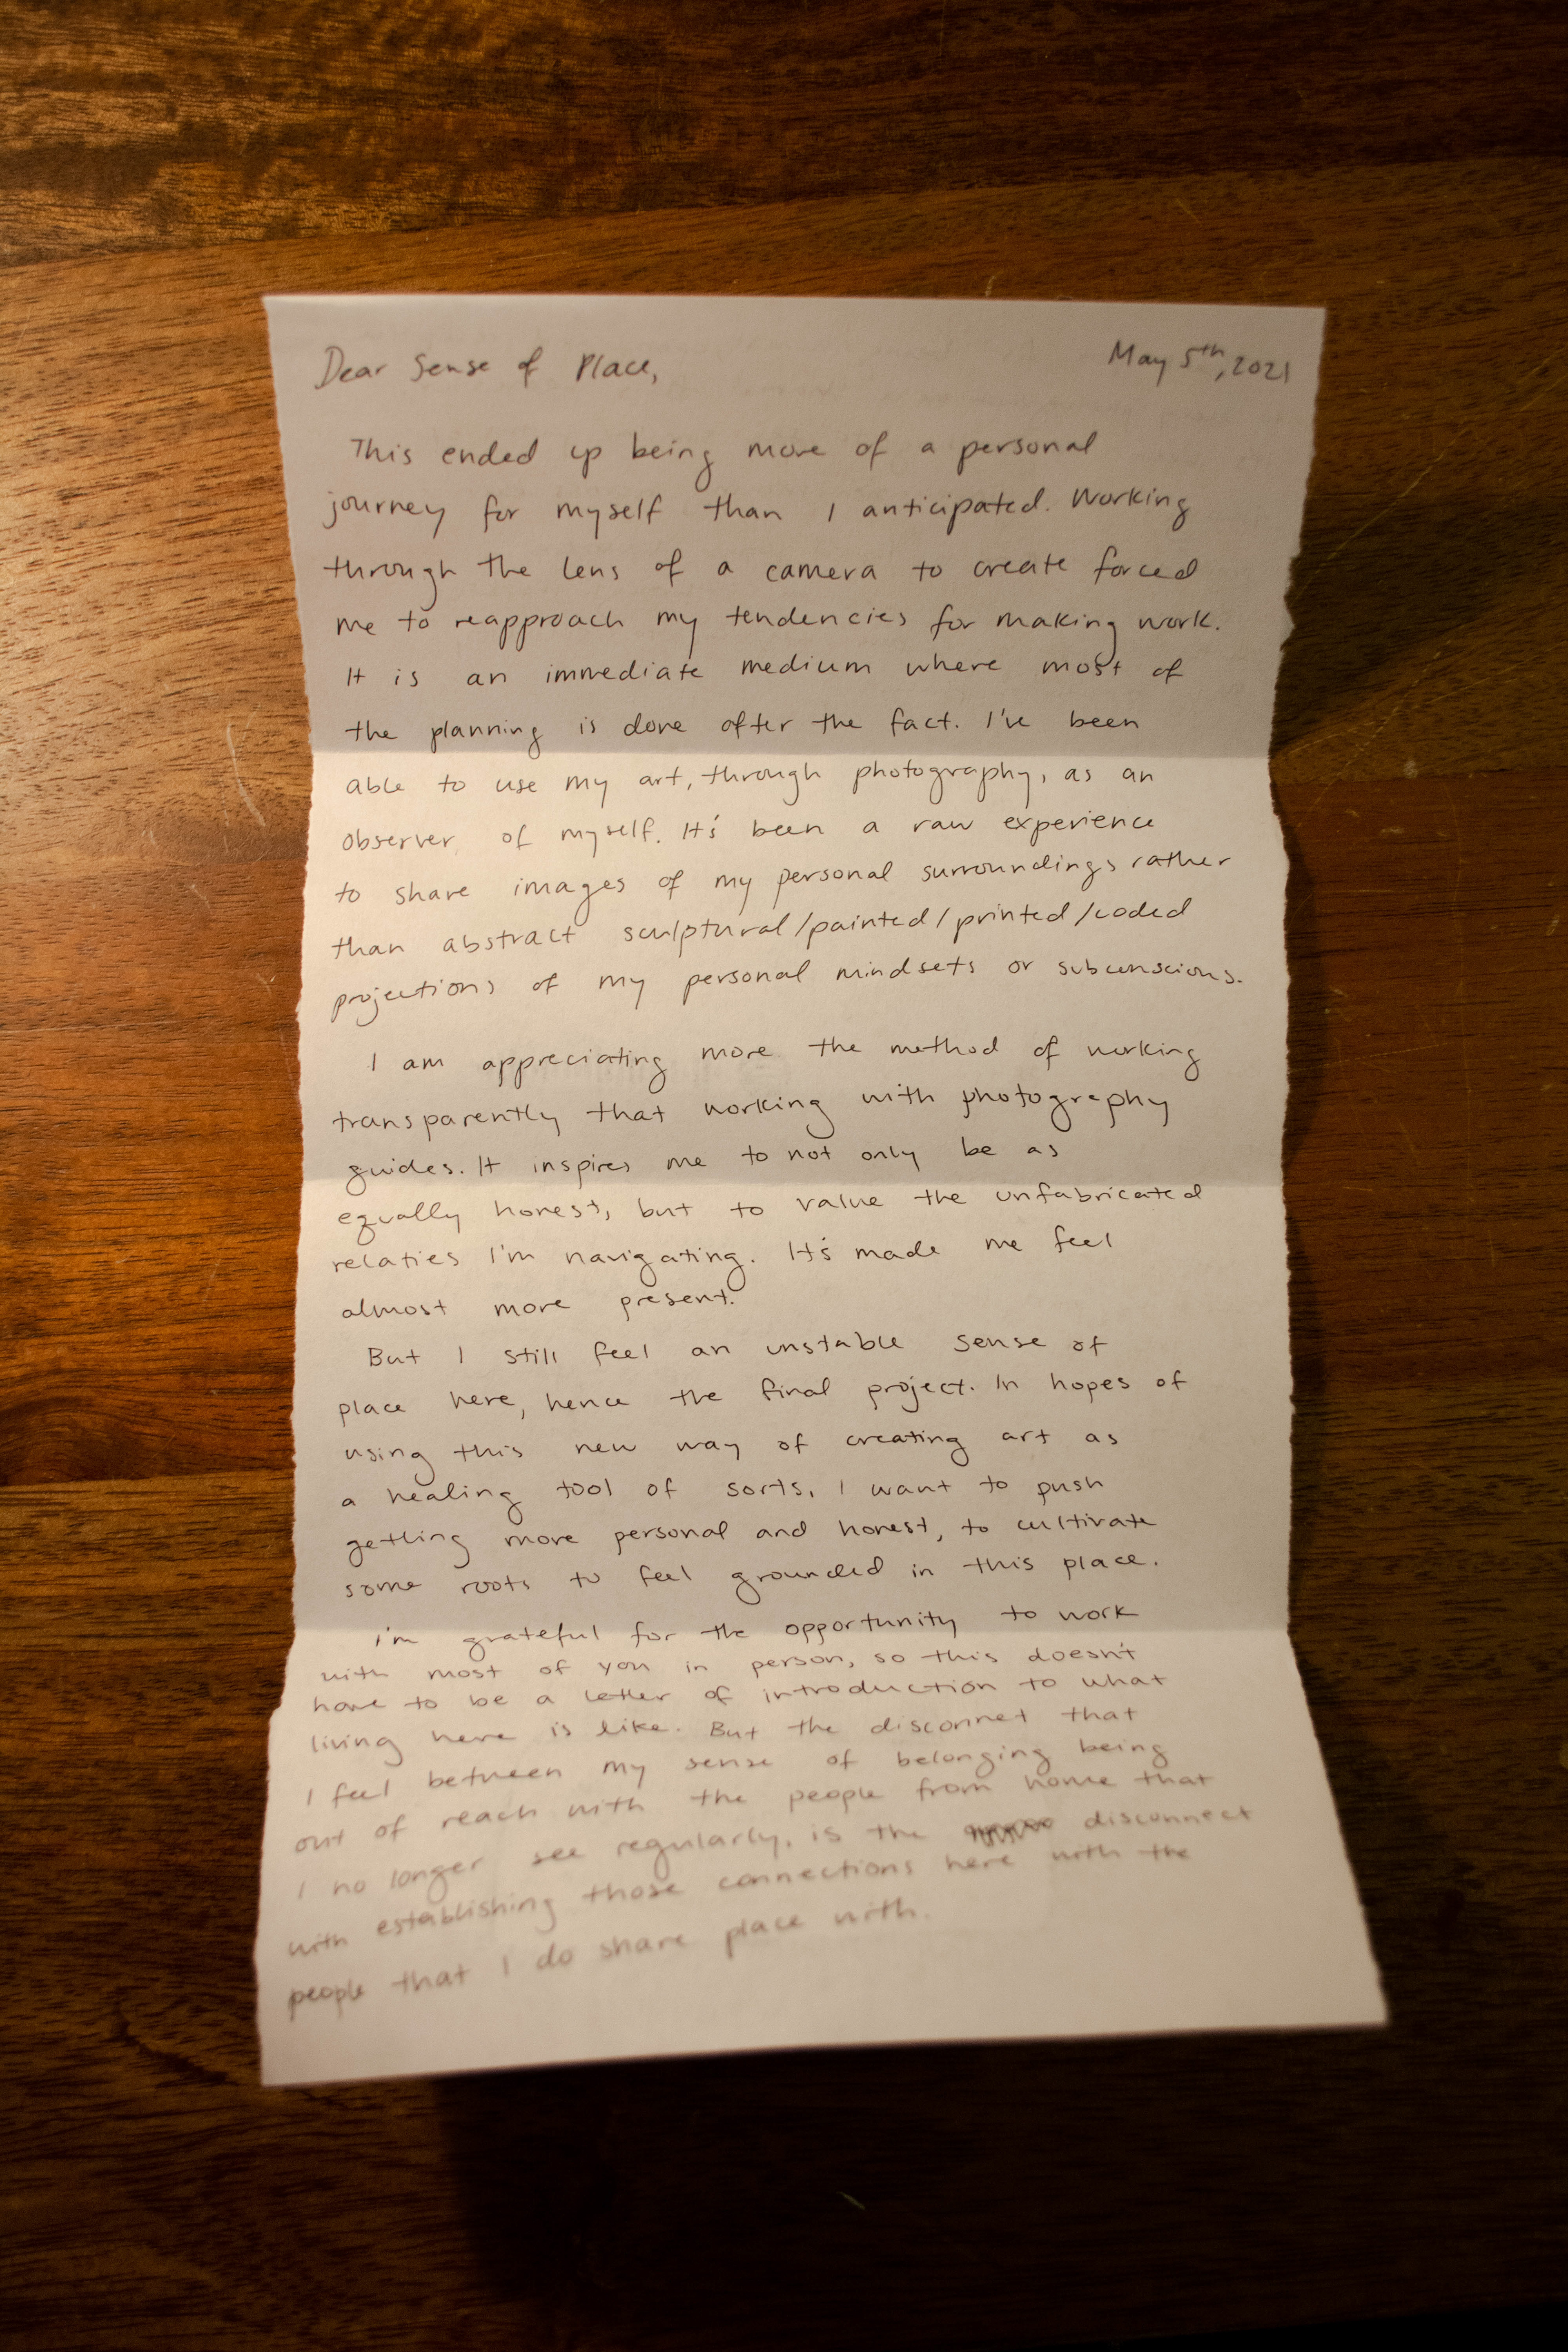 Dear Sense of Place,
May 5th, 2021
This ended up being more of a personal
journey for myself than I anticipated. Working
through the lens of a camera to create forced
me to reapproach my tendencies for making work.
It is an immediate medium where most of
the planning is done after the fact. I've been
able to use my art, through photography, as an
observer of myself. It's been a raw experience
to share images of my personal surroundings rather
than abstract sculptural/painted/printed/coded
projections of my personal mindsets or subconscious.
I am appreciating more the method of working
transparently that working with photography
guides. It inspires me to not only be as
equally honest, but to value the unfabricated
relaties I'm navigating. It's made me feel
almost more present.
But I still feel an unstable sense of
place here, hence the final project. In hopes of
using this new way of creating art as
a healing tool of sorts, I want to push
getting more personal and honest, to cultivate
some roots to feel grounded in this place.
I'm grateful for the opportunity to work
with most of you in person, so this doesn't
have to be a letter of introduction to what
living here is like. But the disconnet that
I feel between my sense of belonging being
out of reach with the people from home that
I no longer see regularly, is the disconnect
with establishing those connections here with the
people that I do share place with.